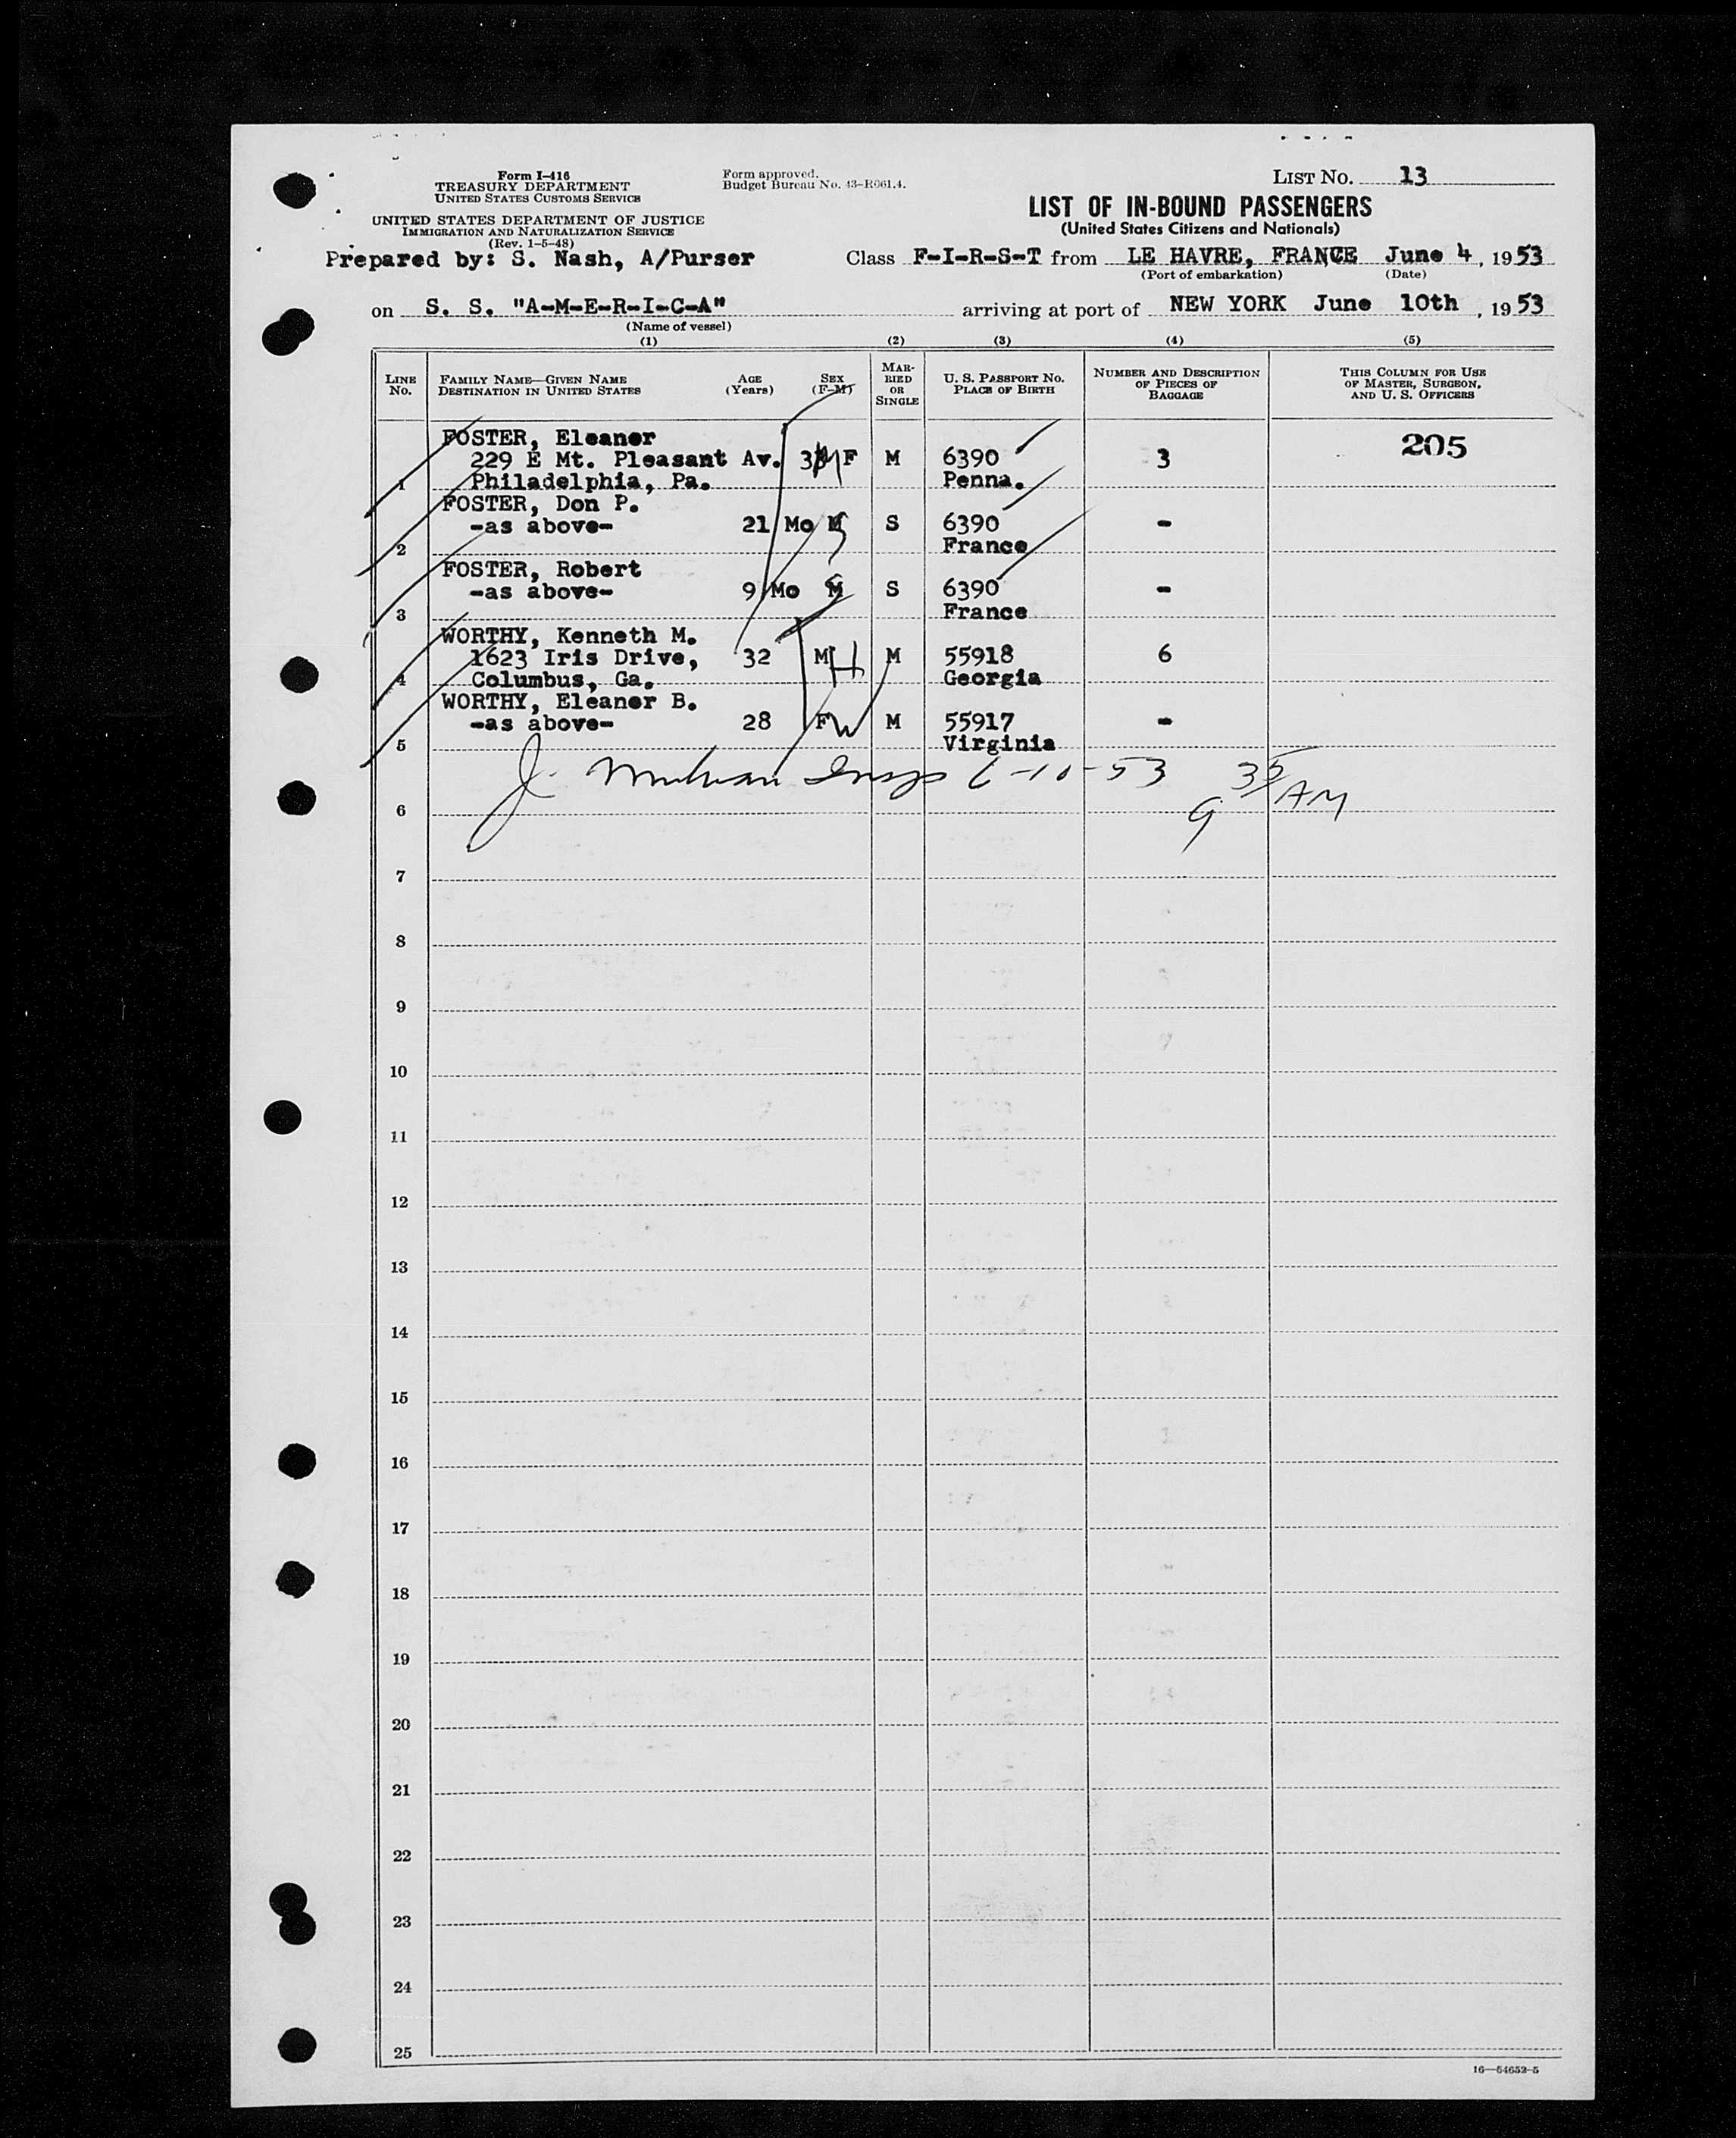 Form I-416
TREASURY DEPARTMENT
UNITED STATES CUSTOMS SERVICE
UNITED STATES DEPARTMENT OF JUSTICE
IMMIGRATION AND NATURALIZATION SERVICE
(Rev. 1-5-48)
Form approved.
Budget Bureau No. 43-R061.4.
LIST NO. 13
LIST OF IN-BOUND PASSENGERS
(United States Citizens and Nationals)
Prepared by: S. Nash, A/Purser
Class F-I-R-S-T from LE HAVRE, FRANCE June 4, 1953
(Port of embarkation) (Date)
on S. S. "A-M-E-R-I-C-A" arriving at port of NEW YORK June 10th, 1953
(Name of vessel)
(1) (2) (3) (4) (5)
LINE NO.
FAMILY NAME—GIVEN NAME
DESTINATION IN UNITED STATES
AGE
(Years)
SEX
(F-M)
MAR-
RIED
OR
SINGLE
U. S. PASSPORT NO.
PLACE OF BIRTH
NUMBER AND DESCRIPTION
OF PIECES OF
BAGGAGE
THIS COLUMN FOR USE
OF MASTER, SURGEON,
AND U. S. OFFICERS
FOSTER, Eleanor 205
229 E Mt. Pleasant Av. F M 6390 3
1 Philadelphia, Pa. Penna.
FOSTER, Don P.
-as above- 21 Mo M S 6390 -
2 France
FOSTER, Robert
-as above- 9 Mo M S 6390 -
3 France
WORTHY, Kenneth M.
1623 Iris Drive, 32 M H M 55918 6
4 Columbus, Ga. Georgia
WORTHY, Eleanor B.
-as above- 28 F W M 55917 -
5 Virginia
J. Insp 6-10-53 9 35 AM
6
7
8
9
10
11
12
13
14
15
16
17
18
19
20
21
22
23
24
25
16—54652-5